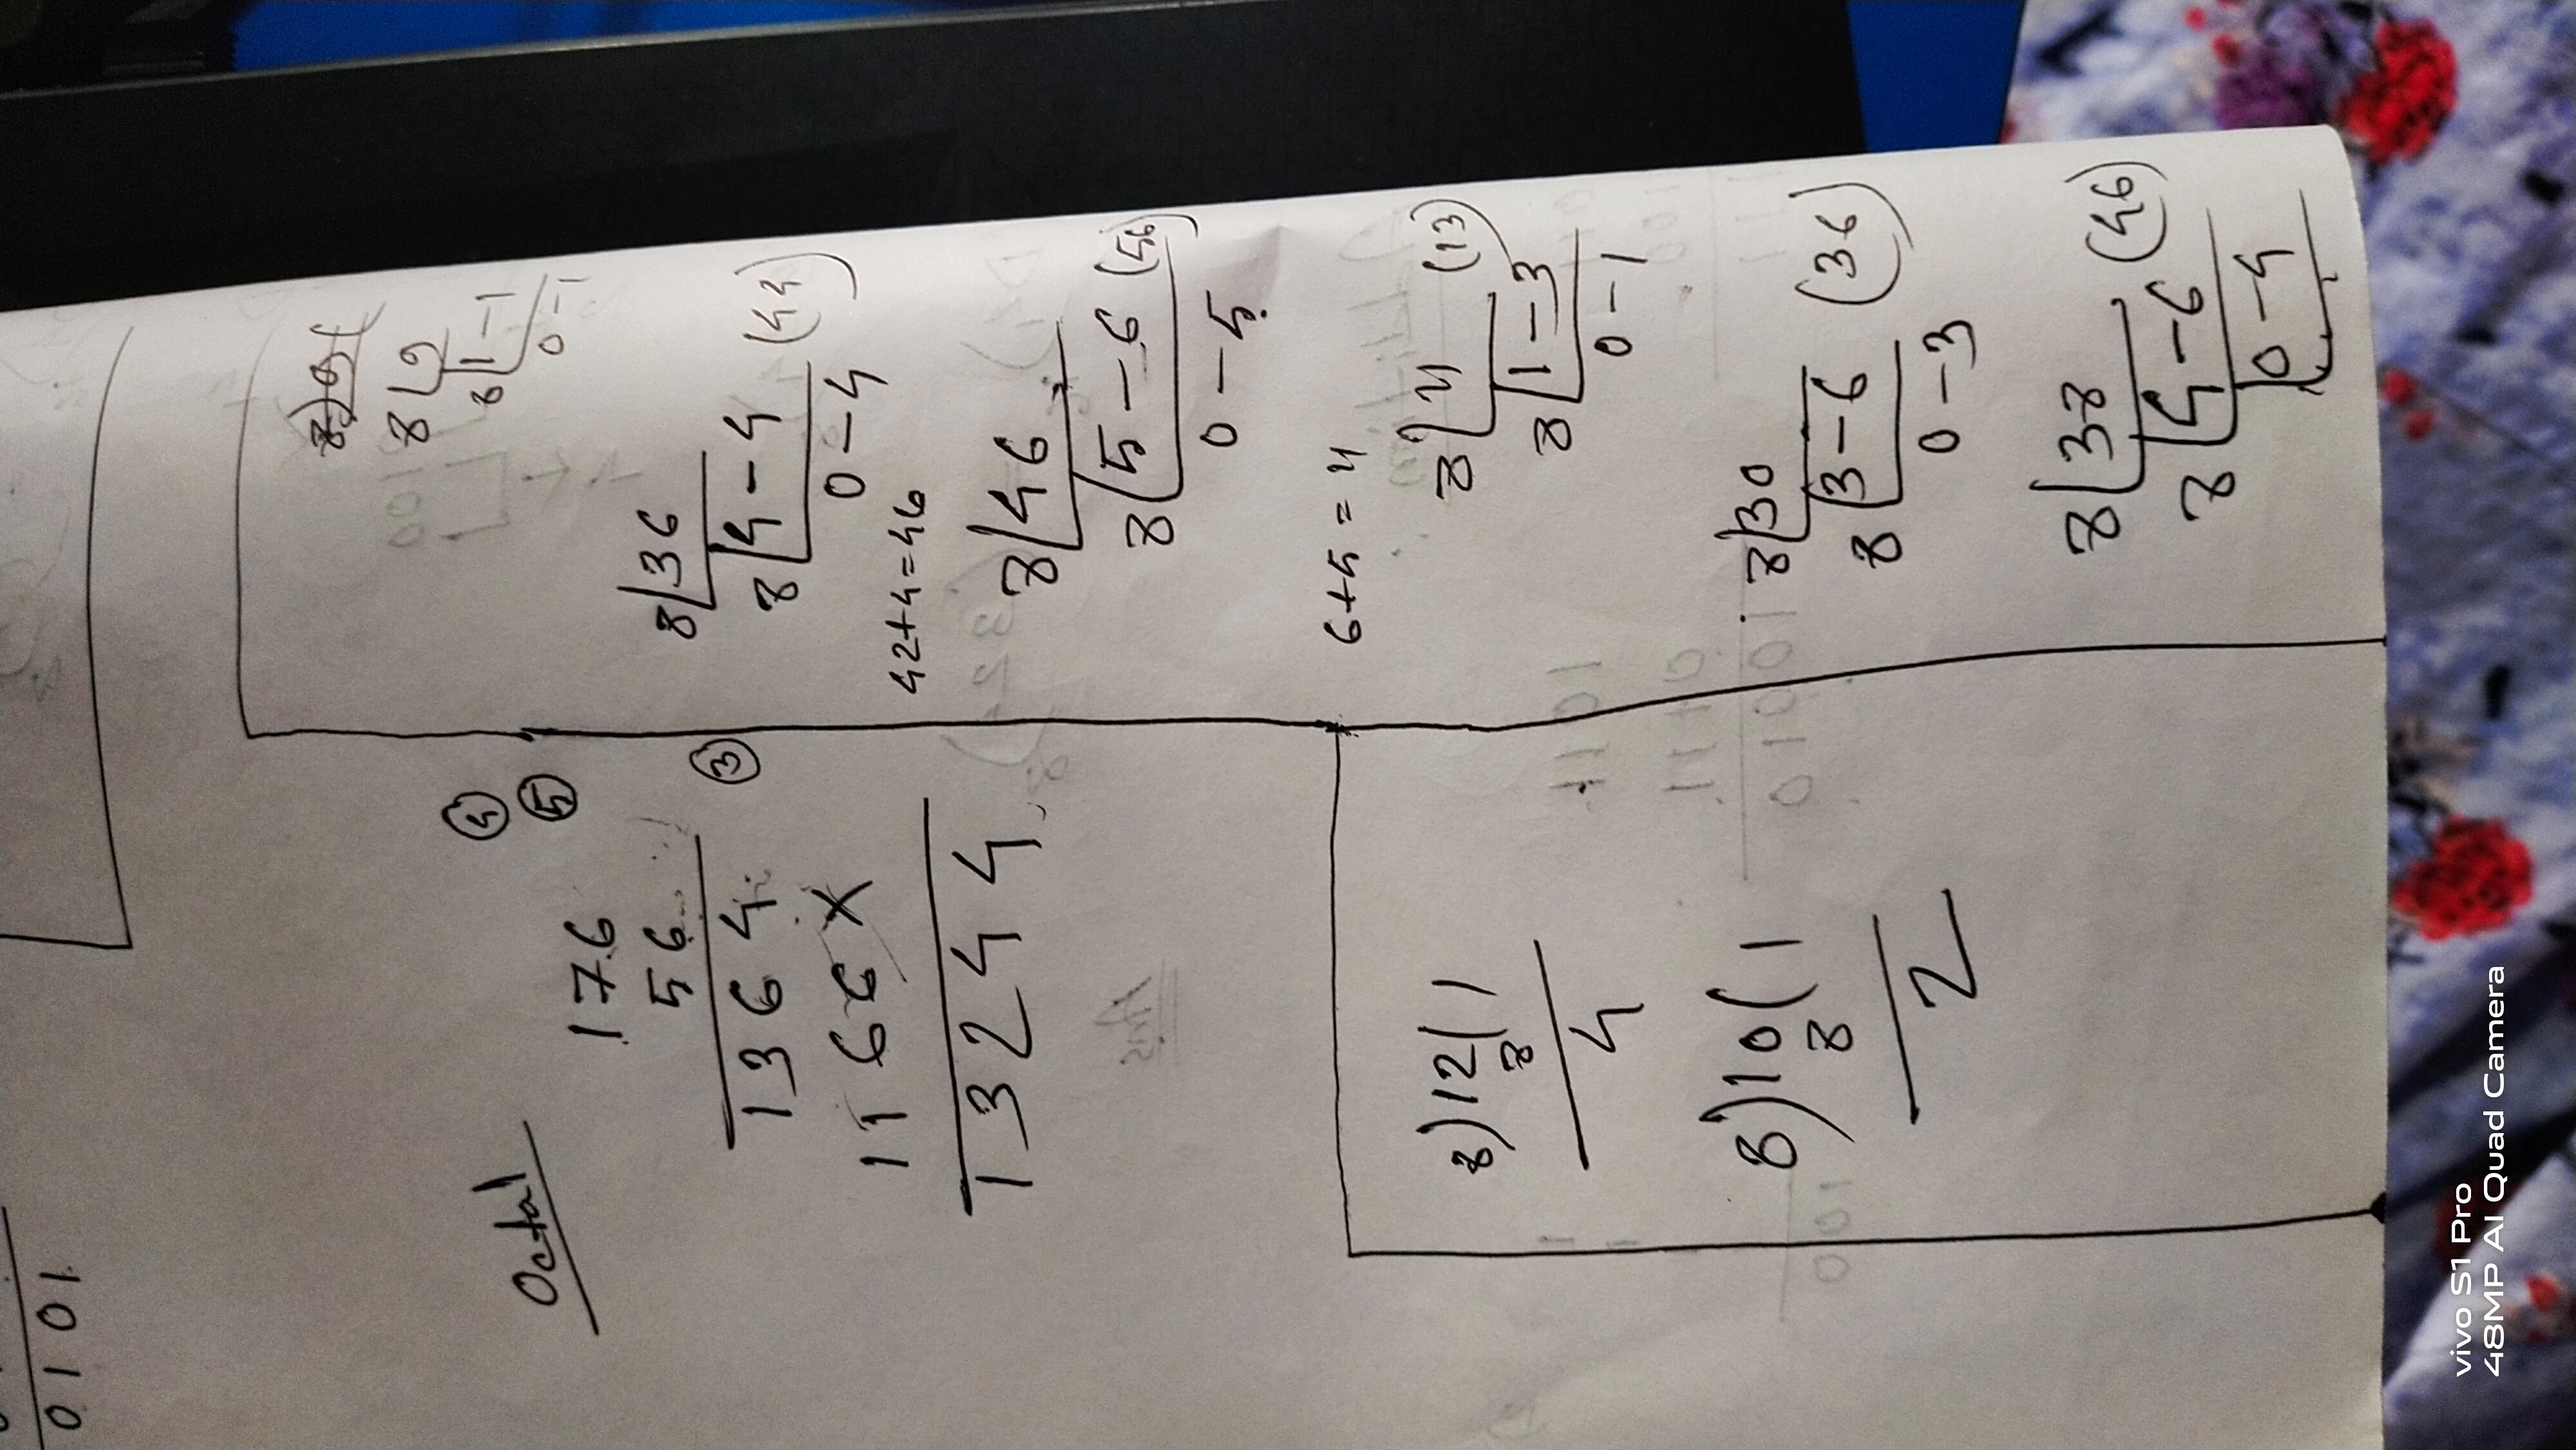 0 1 0 1
Octal
④
⑤
1 7 6
5 6
③
1 3 6 4
1 1 6 6 X
1 3 2 4 4
8)12(1
8
4
8)10(1
8
2
8 9
8 1 - 1
0 - 1
8 36
8 4 - 4 (44)
0 - 4
42+4=46
8 46
8 5 - 6 (56)
0 - 5
6+5 = 11
8 11 (13)
8 1 - 3
0 - 1
8 30
8 3 - 6 (36)
0 - 3
8 38
8 4 - 6 (46)
0 - 4
vivo S1 Pro
48MP AI Quad Camera